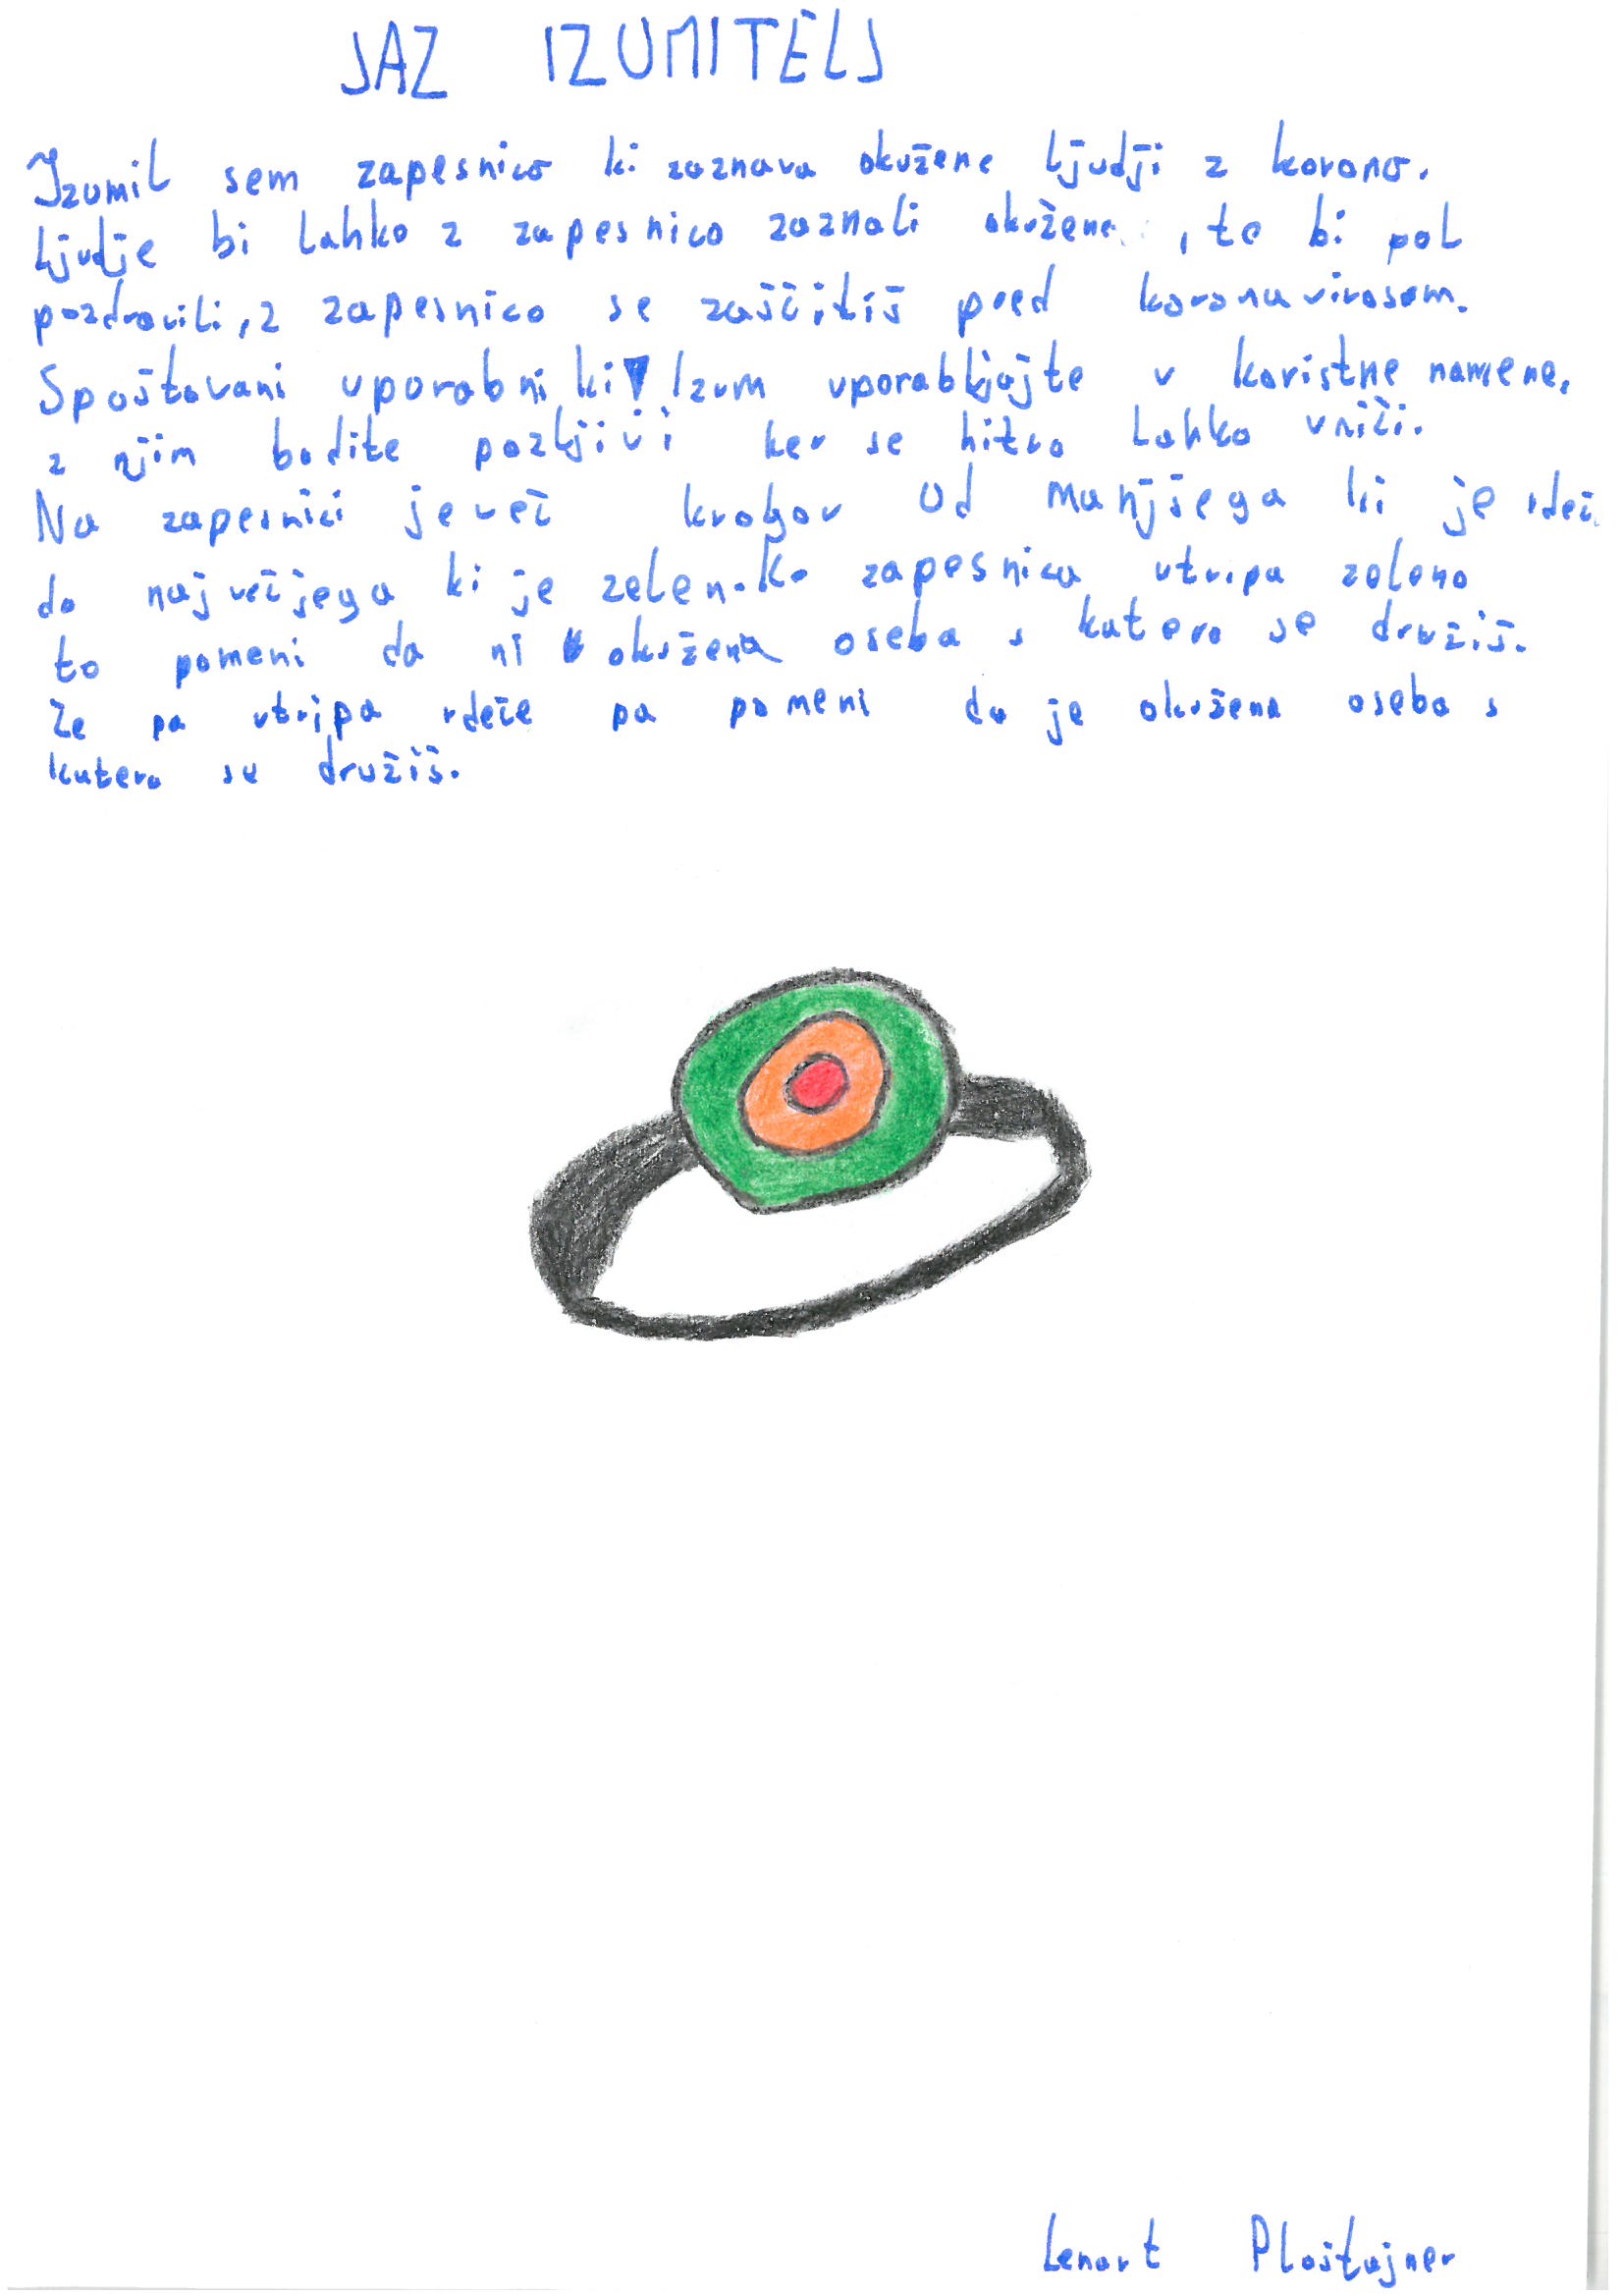 JAZ IZUMITELJ
Izumil sem zapesnico ki zaznava okužene ljudji z korono.
Ljudje bi lahko z zapesnico zaznali okužene, te bi pol
pozdravili, z zapesnico se zaščitiš pred koronavirusom.
Spoštovani uporabniki! Izum uporabljajte v koristne namene,
z njim bodite pozljivi ker se hitro lahko uniči.
Na zapesnici je več krogov od manjšega ki je rdeč
do največjega ki je zelen. Ko zapesnica utripa zeleno
to pomeni da ni okužena oseba s katero se družiš.
Če pa utripa rdeče pa pomeni da je okužena oseba s
katero se družiš.
Lenart Ploštajner